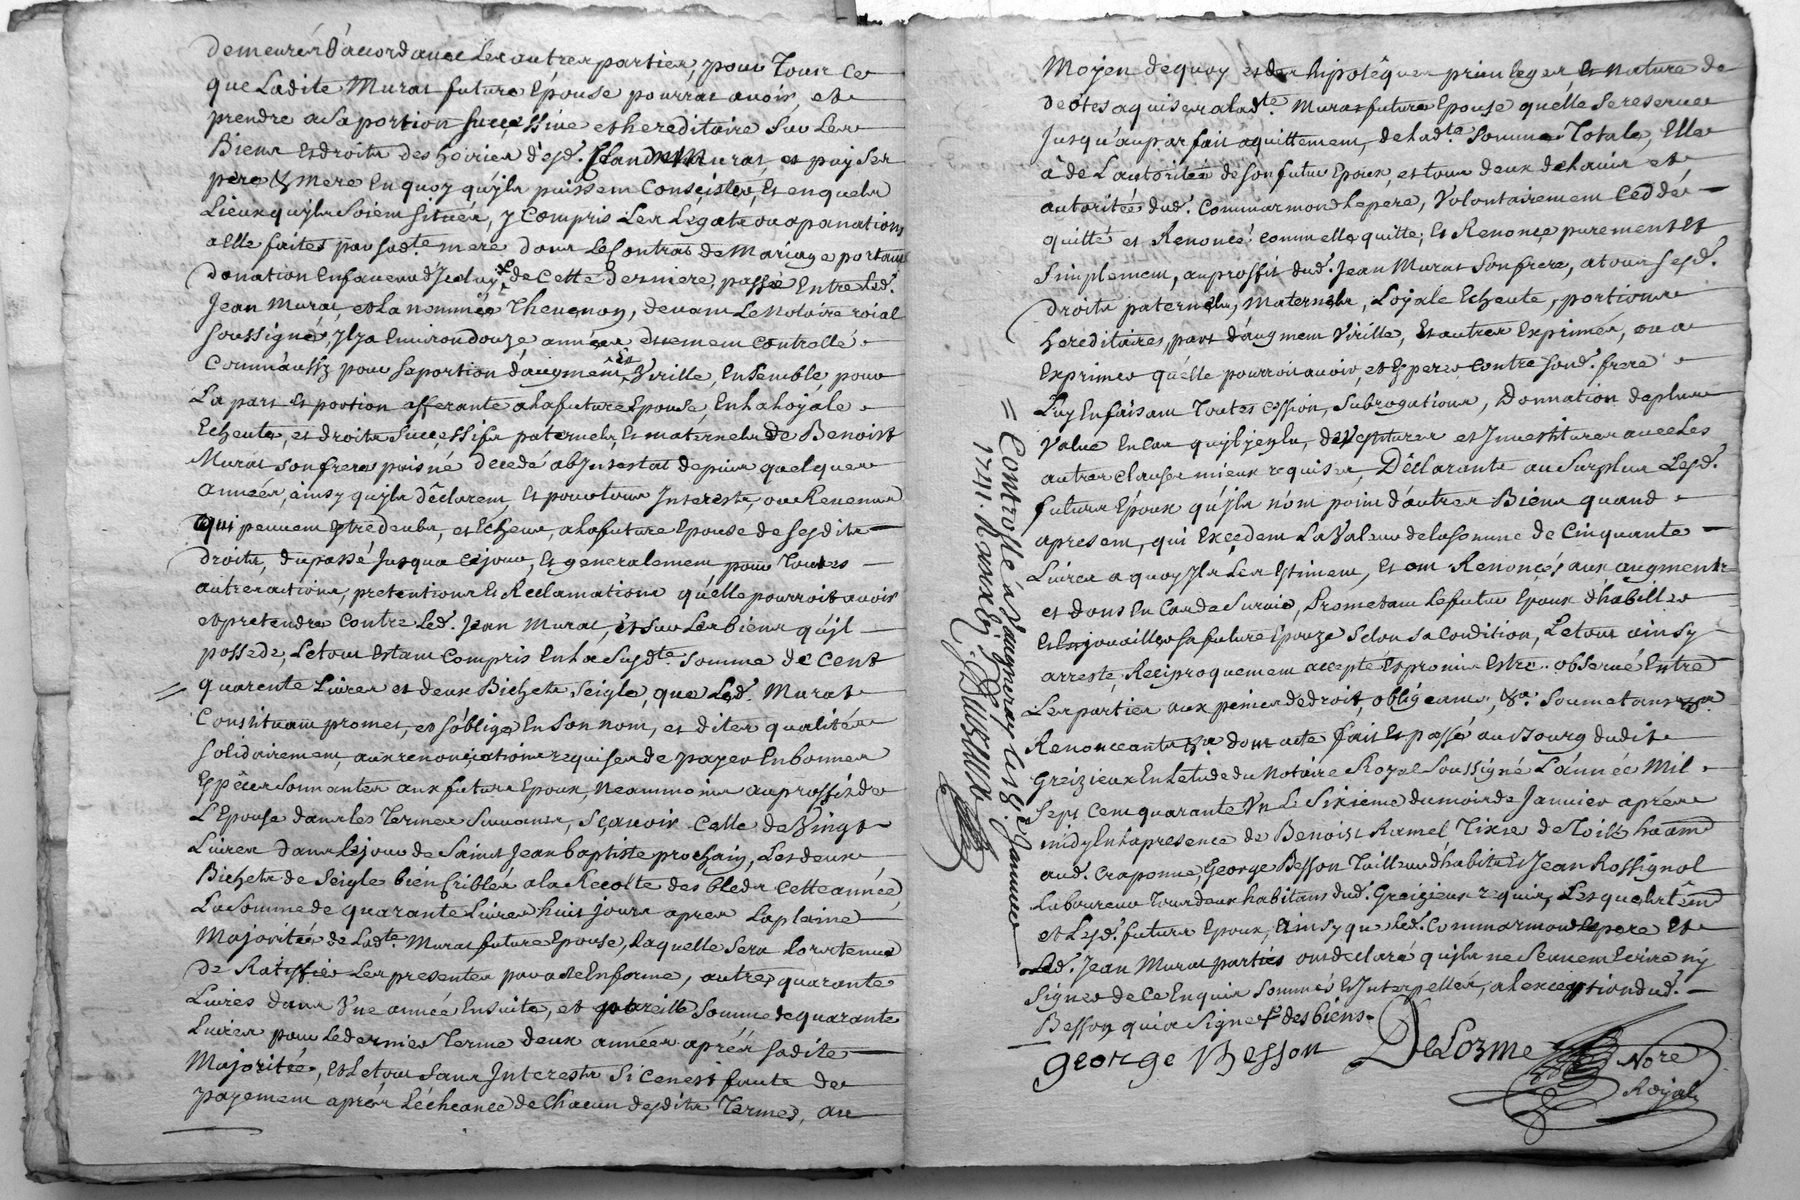 demeurés d'accord avec les autres parties, pour tout ce
que Ladite Murat future Epouse pourrat avoir, et
prendre a sa portion successive et hereditaire sur les
Biens et droits des hoiries desd. Murat, et
pere & mere En quoy qu'yls puissent Conscister, Et en quels
Lieux quyls soient situés, y Compris Les Legats ou apanations
a Elle faites par sadte mere dans Le Contrat de Mariage portant
donation En faveur d'Iceluy de Cette derniere, passé Entre led.
Jean Murat, et La nommée Thevenon, devant Le Notaire roial
soussigné, Il y a Environ douze années, et controllé
Comm'aussy pour sa portion d'augment, et Virille, Ensemble pour
La part et portion afferante a la future Epouse, En la Loyale
Echeute, et droits Successifs paternels Et maternels de Benoist
Murat son frere puisné decedé abIntestat depuis quelques
années, ainsy quyls déclarent, Et pour tous Interests, ou Revenus
Qui peuvent etre deubs, et Echeus, a la future Epouse de sesdits
droits, du passé Jusqua Ce jour, Et generalement pour Toutes
autres actions, pretentions Et Reclamations qu'elle pourroit avoir
et pretendre Contre Led. Jean Murat, et sur Les biens qu'yl
possede, Le tout Estant Compris En La susdte somme de Cent
quarente Livres et deux Bichets seigle, que Led. Murat
Constituant promet, et s'oblige En son nom, et dites qualités
solidairement, aux renonciations requises de payer En bonnes
Espéces sonnantes aux futurs Epoux, Neanmoins au proffit de
L'Epouse dans les Termes suivants, sçavoir Celle de Vingt
Livres dans Le jour de Saint Jean baptiste prochain, Les deux
Bichets de seigle bien Criblés a la Recolte des bleds Cette année
La somme de quarante Livres huit jours apres La pleine
Majorité de Ladte Murat future Epouse, Laquelle sera
de Ratiffier Les presentes par acte En forme, autres quarante
Livres dans Vne année Ensuite, et pareille Somme de quarante
Livres pour Le dernier Terme deux années aprés sadite
Majoritée, Et Le tout sans Interests si ce n'est faute de
payement aprés L'écheance de Chacun desdits Termes, au
Moyen dequoy et des hipotêques privileges Et nature de
dottes aquises a ladte Murat future Epouse qu'elle se reserve
jusqu'au parfait aquittement, de Ladte somme Totale, Elle
â de L'autoritée de son futur Epoux, et tous deux de L'avis et
autoritée dud. Commarmond Le pere, Volontairement Ceddé
quitté et Renoncé comm'elle quitte, Et Renonçe purement Et
simplement, au proffit dud. Jean Murat son frere, a tous sesd.
droits paternels, Maternels, Loyale Echeute, portions
hereditaires, part d'augment Virille, Et autres Exprimés, ou a
Exprimer qu'elle pourroit avoir, et Esperer Contre sond. frere
Luy En faisant Toutes Cession, Subrogations, Donnation de plus
Value En Cas quyl y en Eu, devestitures et Investitures avec Les
autres Clauses mieux requises, Déclarants au surplus Lesd.
futurs Epoux qu'yls n'ont point d'autres Biens quand
apresent, qui Excedent La Valeur de la somme de Cinquante
Livres a quoy Ils Les Estiment, Et ont Renoncés aux augments
et dons En Cas de survie, Promettant Le futur Epoux d'habiller
Et Enjouailler sa future Epouze selon sa Condition, Le tout ainsy
arresté, Reciproquement accepté Et promis Estre observé Entre
Les parties aux peines de droit, obligeants, &a. soumetants &a.
Renonceants &a dont acte fait Et passé au Bourg dudit
Greizieux En Letude du Notaire Royal soussigné L'année Mil
sept Cent quarante Vn Le sixieme du mois de Janvier aprés
midy En la presence de Benoist Ramel Tixie de Toile
aud. Craponne, George Besson Tailleur d'habits & Jean Rossignol
Laboureur tous deux habitans dud. Greizieux requis, Lesquels
et Lesd. futurs Epoux, Ainsy que led. Commarmond Le pere Et
Led. Jean Murat parties ont declaré qu'yls ne sçavent Ecrire ny
signer de Ce Enquis sommés Et Interpellés, a L'exception dud.
Besson, qui a signé / des biens.
george Besson DeLorme Nore
Royal
= Controllé a Vaugneray Le 18e Janvier
1741. R